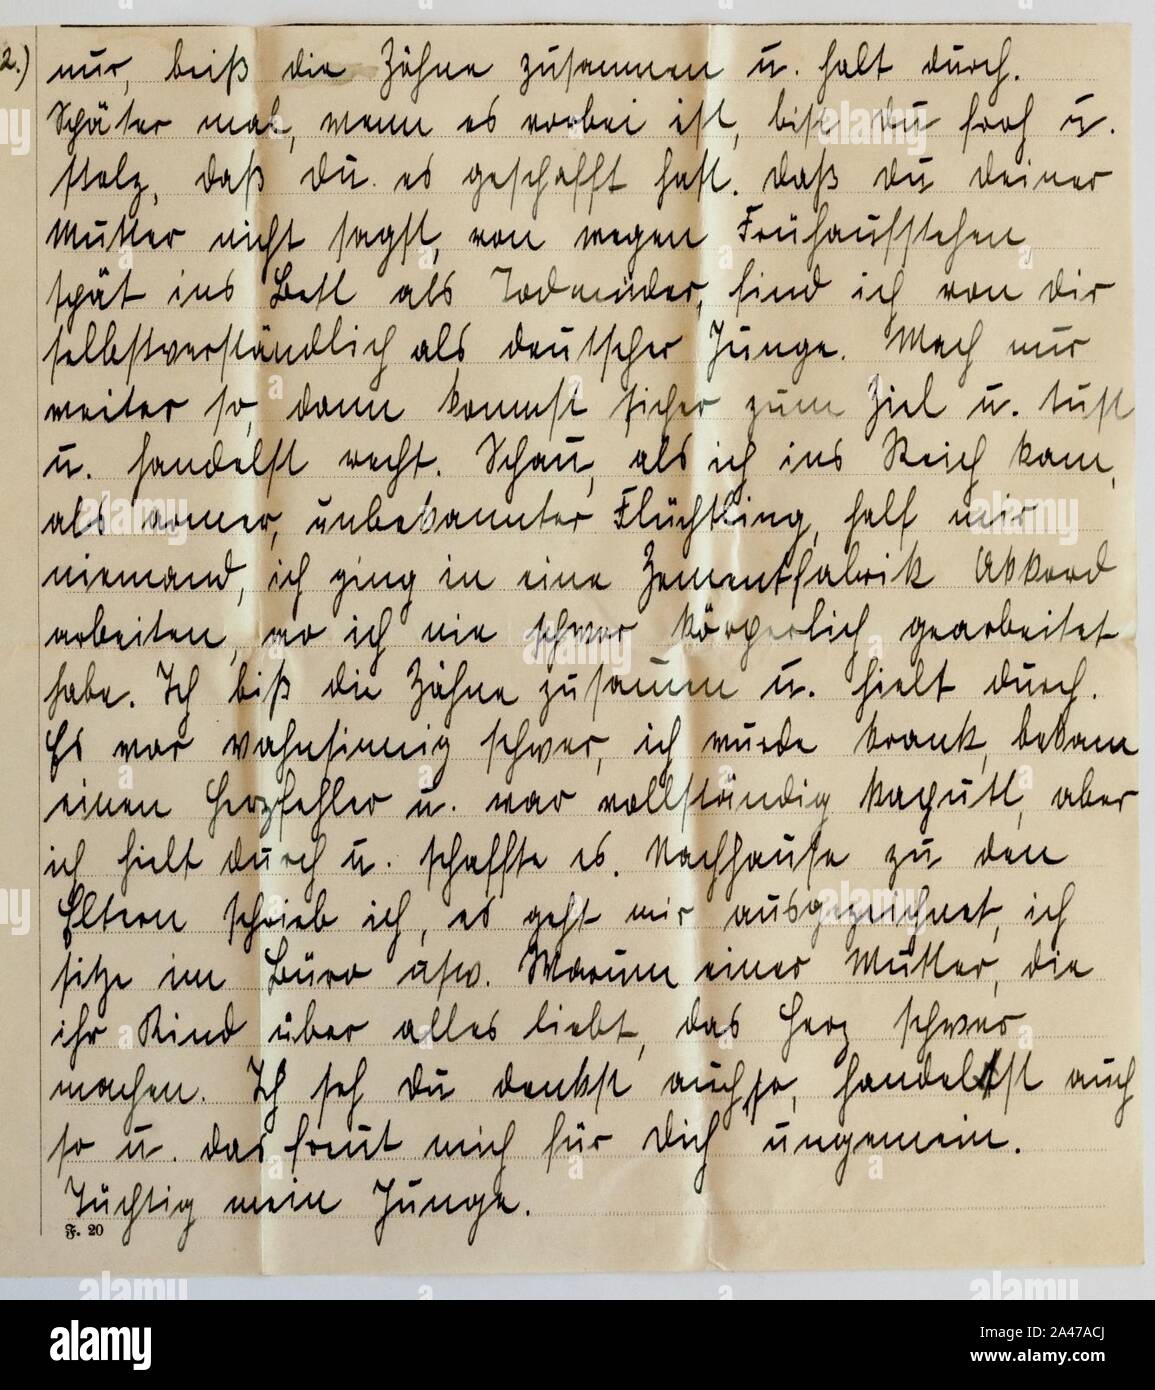 2.) nur, beiß die Zähne zusammen u. halt durch.
Später mal, wenn es vorbei ist, bist du froh u.
stolz, daß du es geschafft hast. daß du deiner
Mutter nicht sagst, von wegen Frühaufstehen,
spät ins Bett als Todmüder, find ich von dir
selbstverständlich als deutscher Junge. Mach nur
weiter so, dann kommst sicher zum Ziel u. tust
u. handelst recht. Schau, als ich ins Reich kam,
als armer, unbekannter Flüchtling, half mir
niemand, ich ging in eine Zementfabrik Akkord
arbeiten, wo ich nie schwer körperlich gearbeitet
habe. Ich biß die Zähne zusammen u. hielt durch.
Es war wahnsinnig schwer, ich wurde krank, bekam
einen Herzfehler u. war vollständig kaputt, aber
ich hielt durch u. schaffte es. Nachhause zu den
Eltern schrieb ich, es geht mir ausgezeichnet, ich
sitze im Büro usw. Warum einer Mutter, die
ihr Kind über alles liebt, das Herz schwer
machen. Ich seh du denkst auch so, handelst auch
so u. das freut mich für dich ungemein.
Tüchtig mein Junge.
F. 20
alamy
alamy
Image ID: 2A47ACJ
www.alamy.com